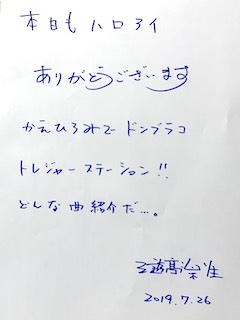 本日も ハロアイ
ありがとうございます
かえひろみで ドンブラコ
トレジャーステーション!!
どんな曲紹介だ…。
2019.7.26